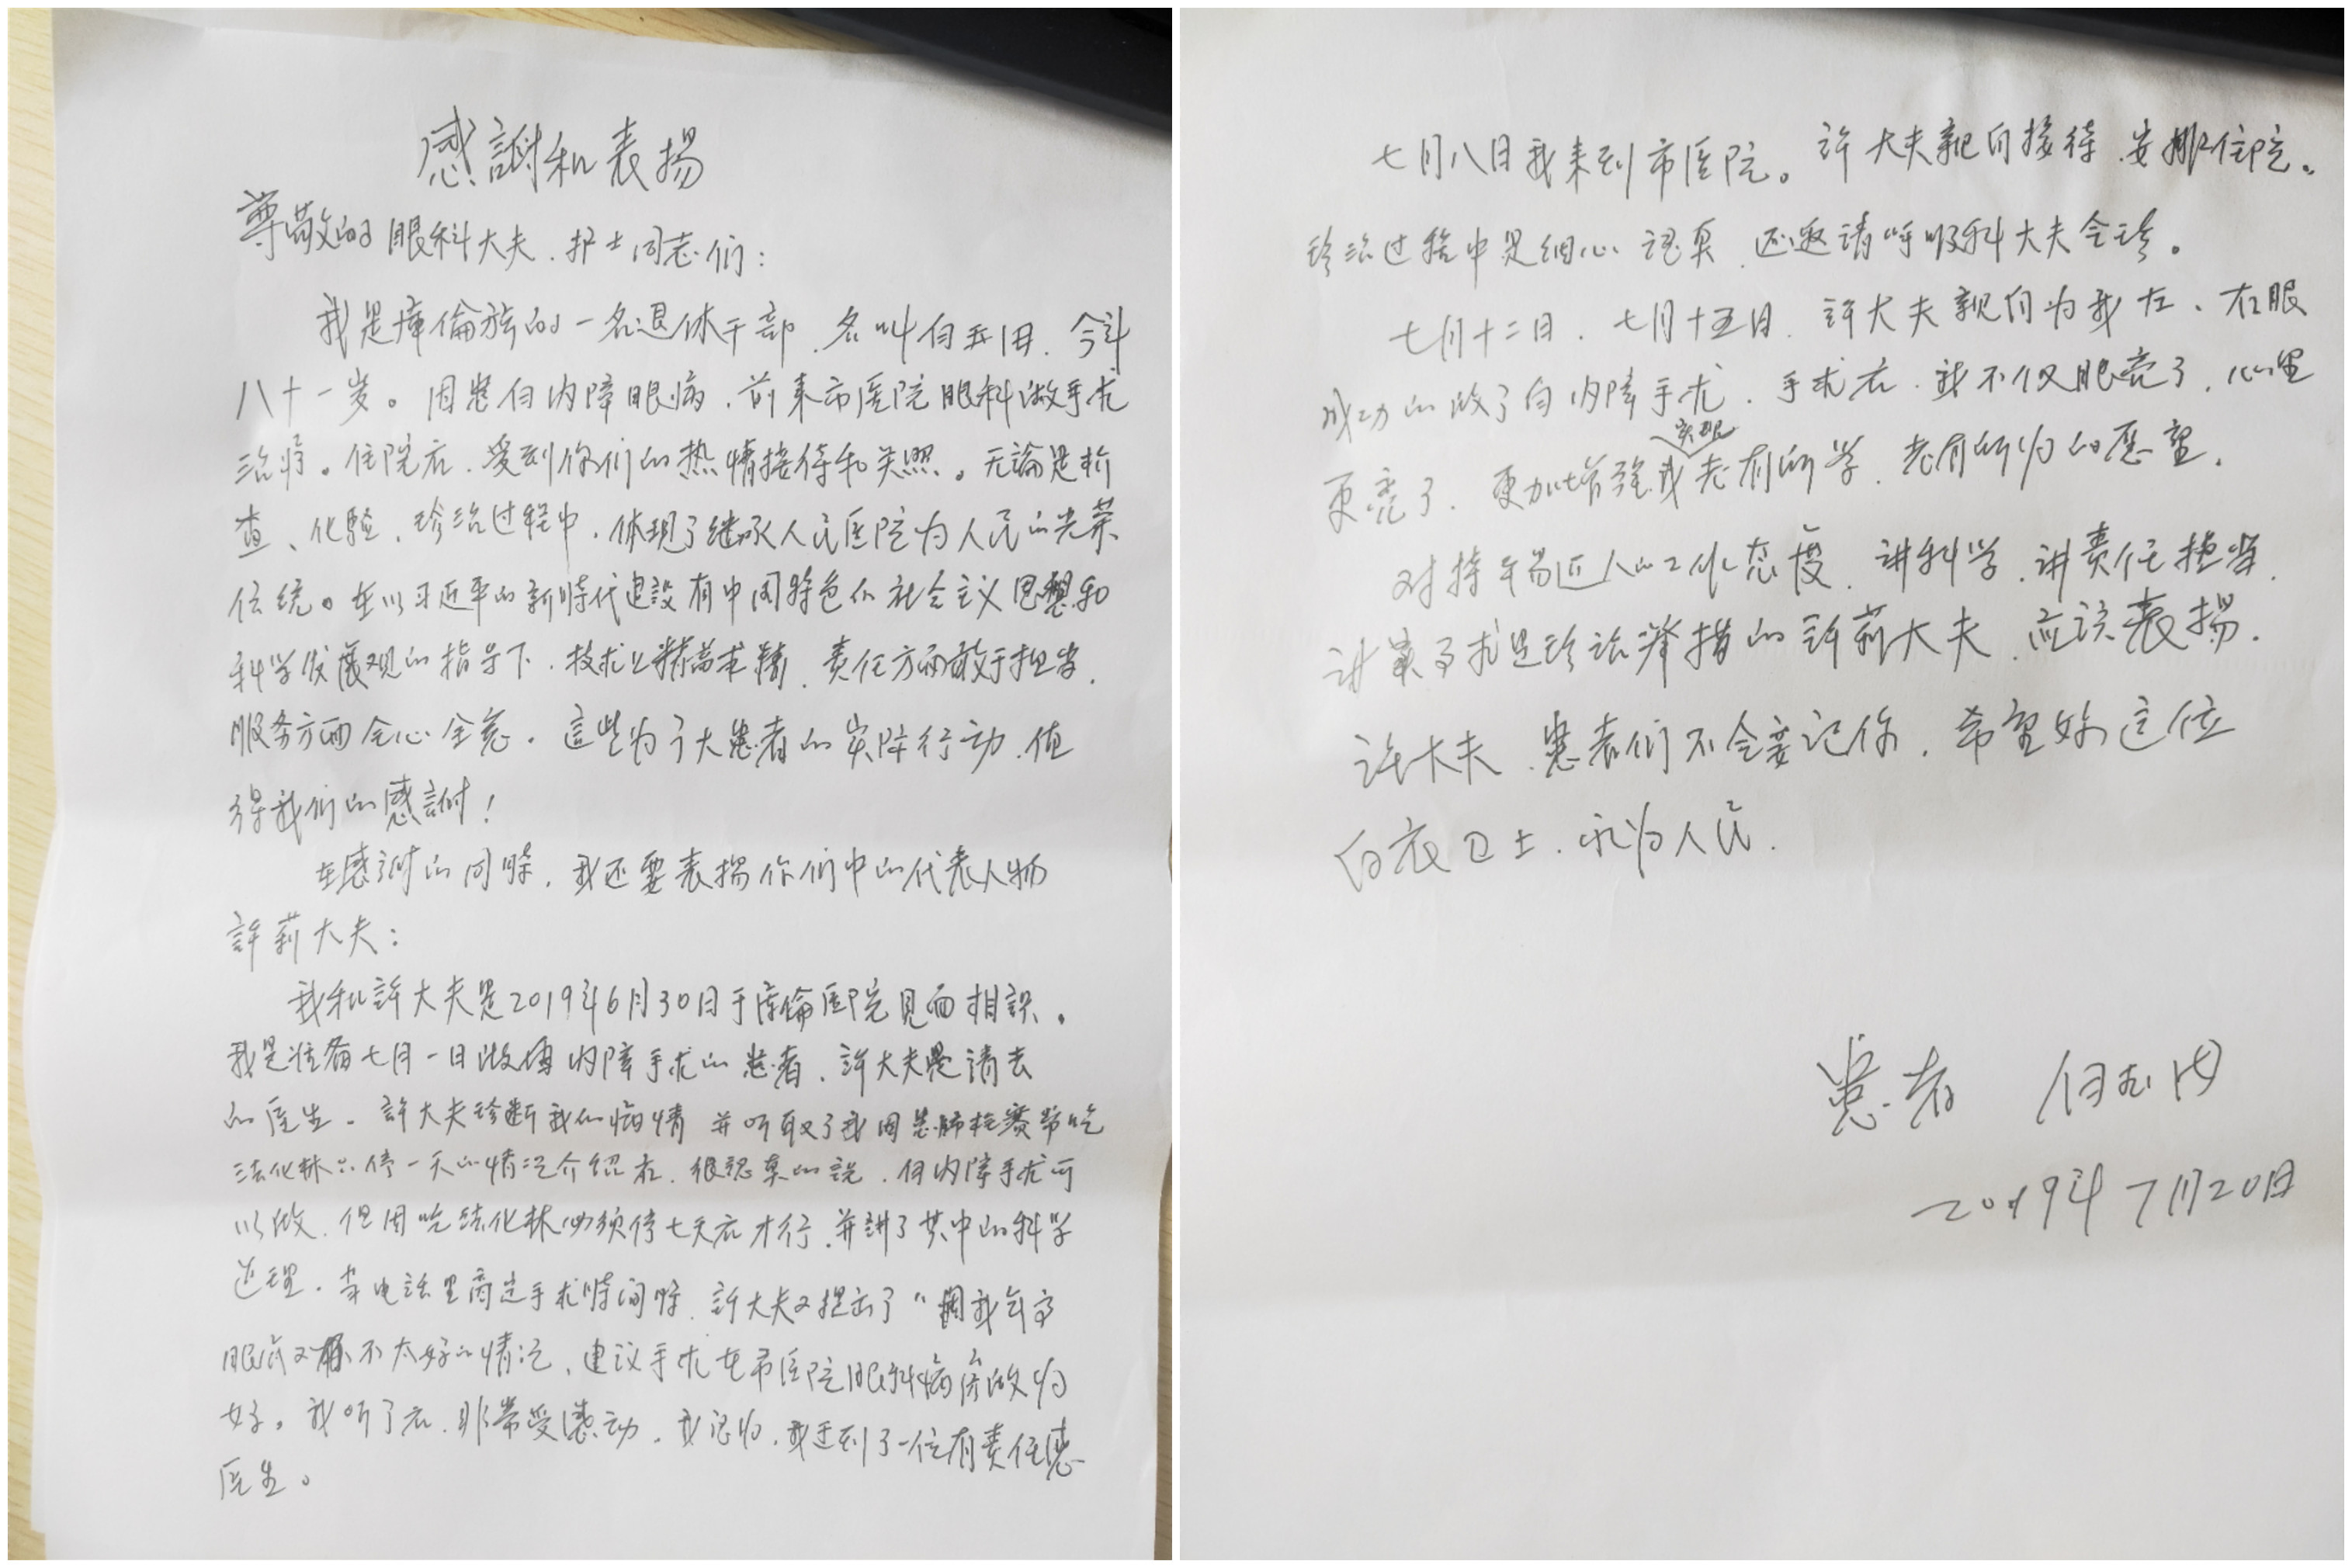 感謝和表揚
尊敬的眼科大夫、护士同志们：
我是庫倫旗的一名退休干部，名叫白玉田，今年
八十一岁。因患白内障眼病，前来市医院眼科做手术
治疗。住院后，受到你们的热情接待和关照。无論是检
查、化驗、珍治过程中，体现了继承人民医院为人民的光荣
传统。在以习近平的新時代建設有中国特色的社会主义思想和
科学发展观的指导下，技术上精益求精，责任方面敢于担当，
服务方面全心全意。這些为了大患者的实际行动，值
得我们的感謝！
在感謝的同時，我还要表揚你们中的代表人物
許莉大夫：
我和許大夫是2019年6月30日于庫倫医院見面相識。
我是准备七月一日做内障手术的患者，許大夫是请去
的医生。許大夫珍断我的病情并听取了我因患肺栓塞常吃
法化林只停一天的情况介绍后，很認真的説，白内障手术可
以做，但因吃法化林必须停七天后才行，并講了其中的科学
道理，当电話里商定手术時间時，許大夫又提出了“因我年高
眼底又不太好的情况，建议手术在市医院眼科病房做为
好。我听了后，非常受感动，我認为，我遇到了一位有责任感
医生。
七月八日我来到市医院。許大夫親自接待、安排住院。
珍治过程中是细心認真，还邀请呼吸科大夫会珍。
七月十二日、七月十五日，許大夫親自为我左、右眼
成功的做了白内障手术，手术后，我不仅眼亮了，心里
实现
更亮了，更加增強我老有所学、老有所为的愿望。
对持平易近人的工作态度，讲科学，讲责任担当，
讲实事求是珍治举措的許莉大夫，应该表揚。
許大夫，患者们不会忘记你，希望妳这位
白衣卫士，永为人民。
患者 白玉田
2019年7月20日